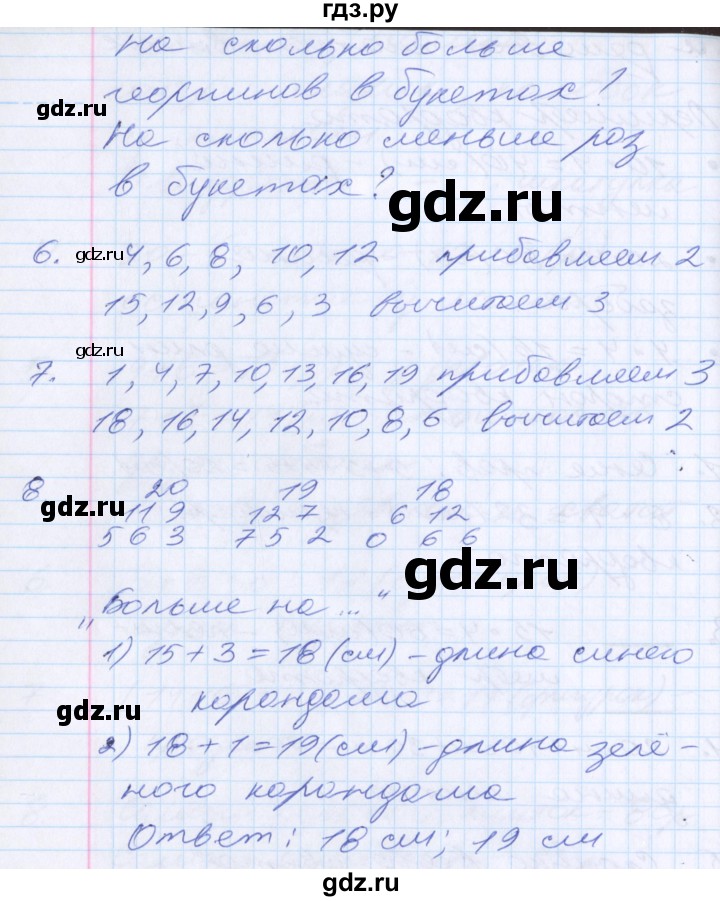 гдз.ру
На сколько больше
gdz.ru
георгинов в букетах?
На сколько меньше роз
gdz.ru
в букетах?
6. gdz.ru 4, 6, 8, 10, 12 прибавляем 2
15, 12, 9, 6, 3 вычитаем 3
gdz.ru
7. 1, 4, 7, 10, 13, 16, 19 прибавляем 3
18, 16, 14, 12, 10, 8, 6 вычитаем 2
8. 20 19 18
gdz.ru 11 9 12 7 6 12
5 6 3 7 5 2 0 6 6
gdz.ru
„Больше на..."
1) 15 + 3 = 18 (см) – длина синего
карандаша
gdz.ru
2) 18 + 1 = 19 (см) – длина зелё-
ного карандаша
Ответ: 18 см; 19 см
gdz.ru